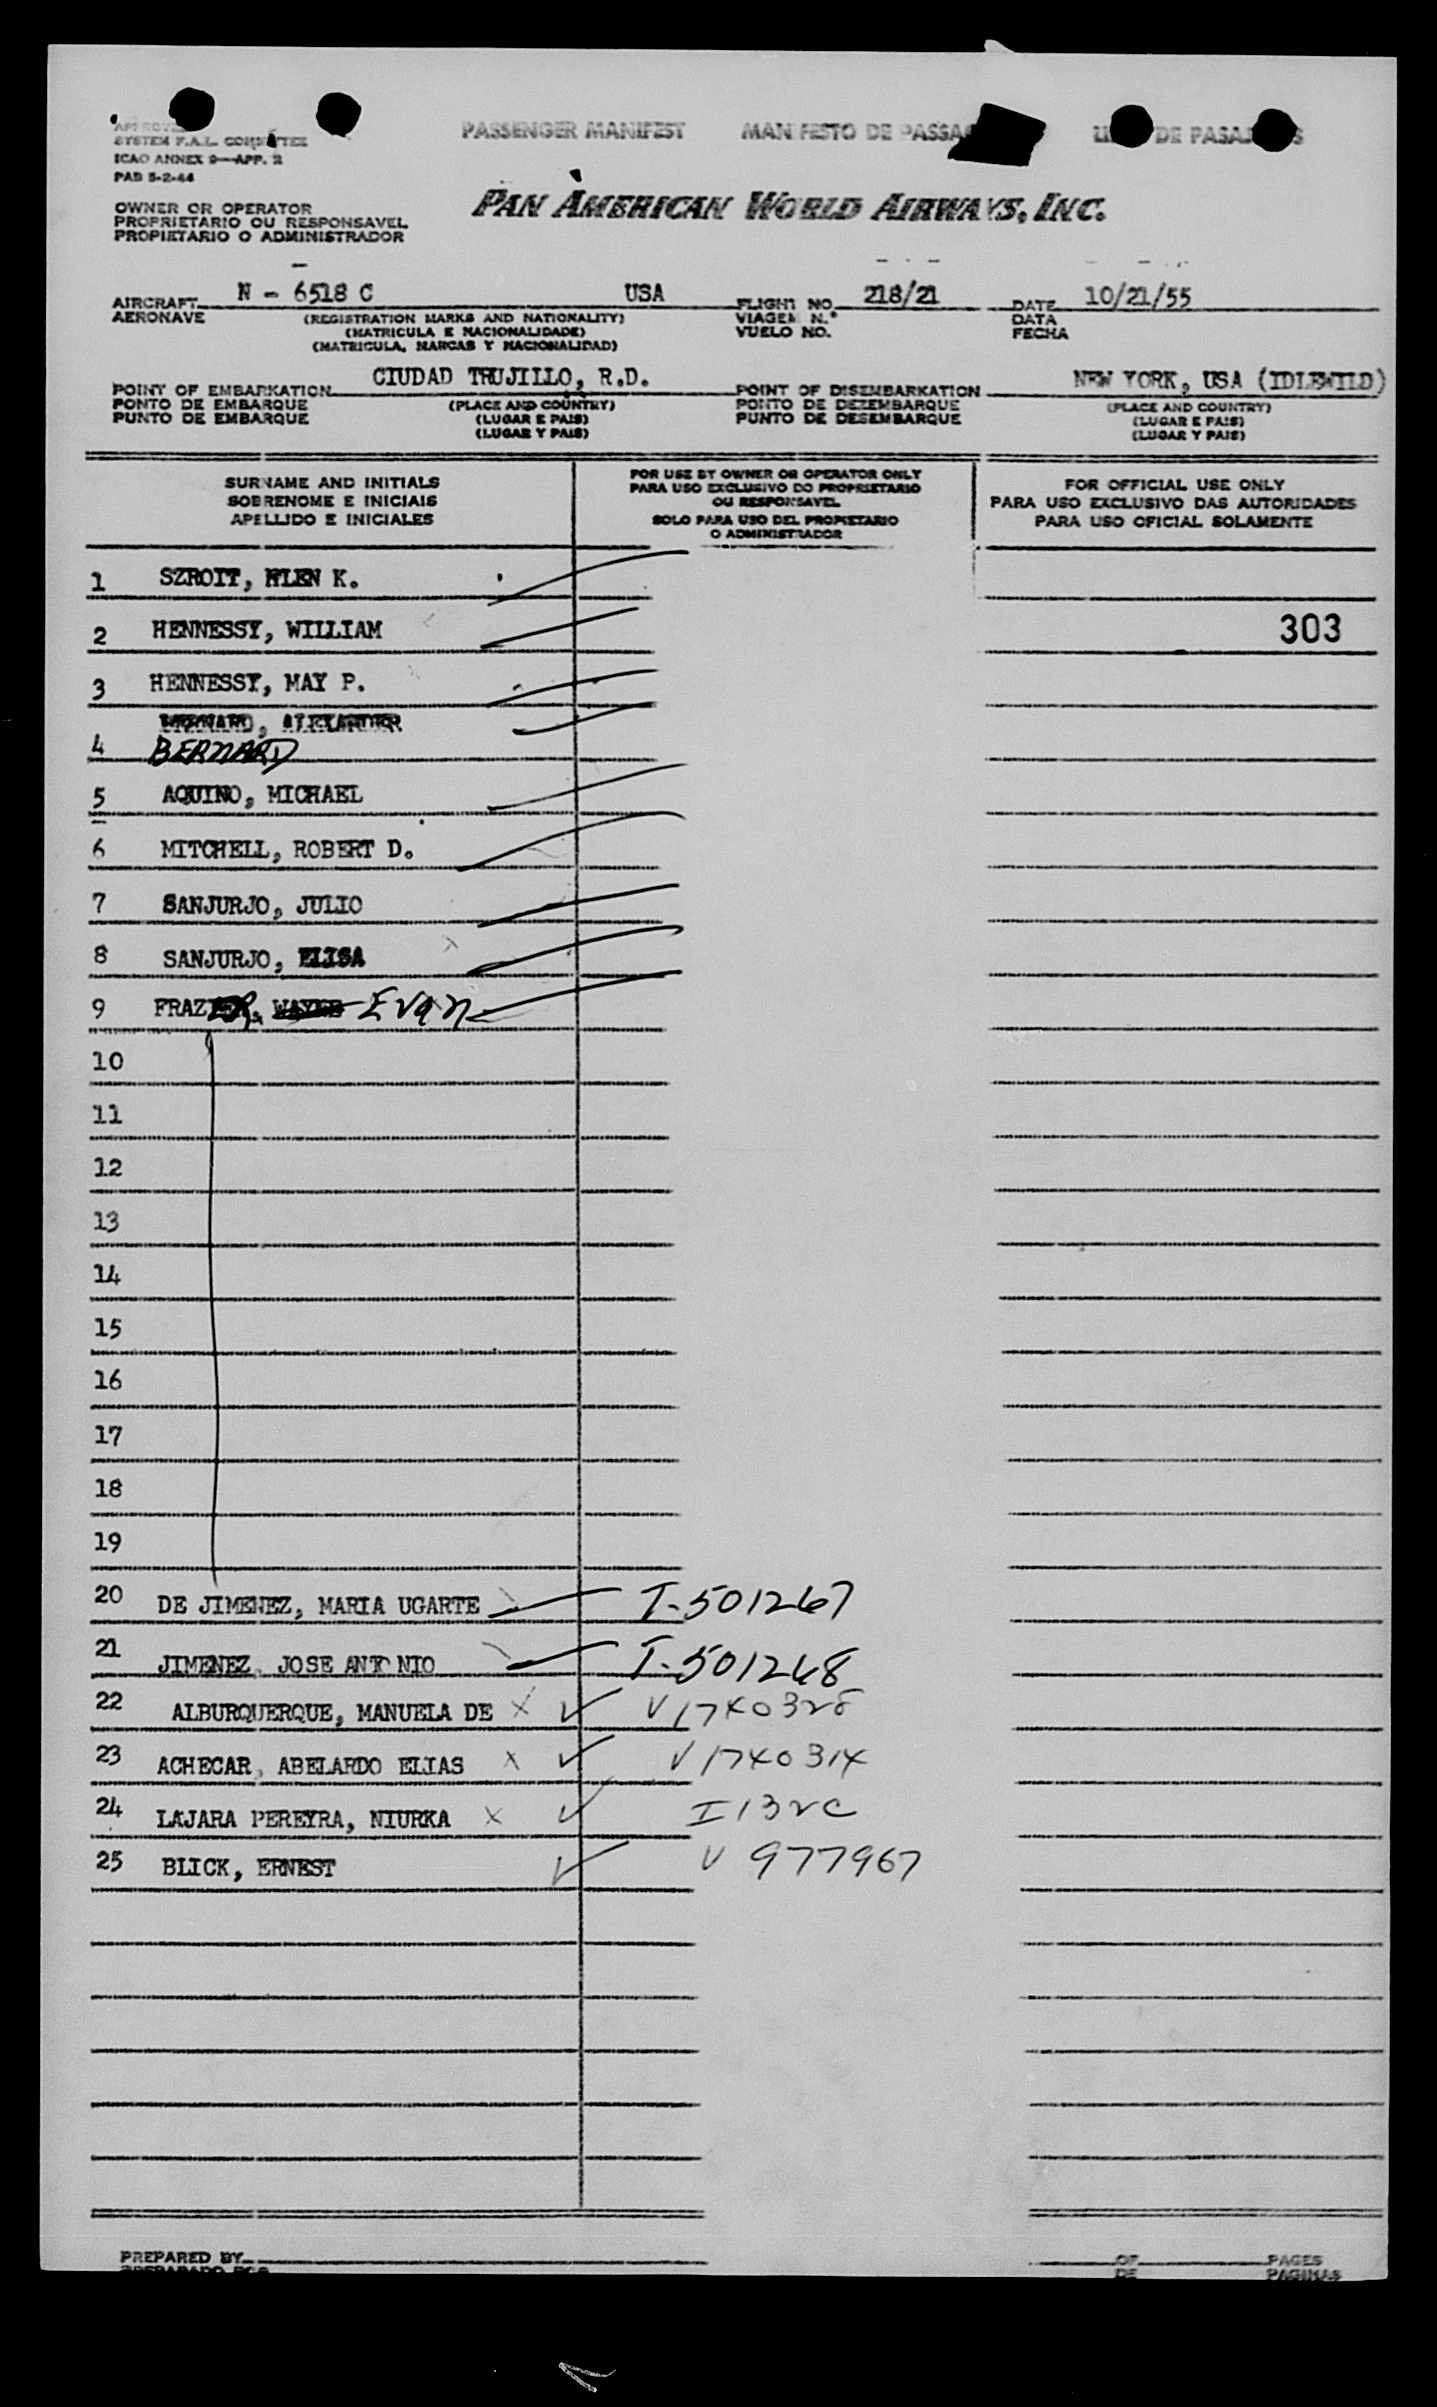 PASSENGER MANIFEST MANIFESTO DE DE
SYSTEM F.A.L. COMMITTEE
ICAO ANNEX 9—APP. 2
PAB 5-2-44
PAN AMERICAN WORLD AIRWAYS, INC.
OWNER OR OPERATOR
PROPRIETARIO OU RESPONSAVEL
PROPIETARIO O ADMINISTRADOR
AIRCRAFT N - 6518 C USA FLIGHT NO. 218/21 DATE 10/21/55
AERONAVE (REGISTRATION MARKS AND NATIONALITY) VIAGEM N.º DATA
(MATRICULA E NACIONALIDADE) VUELO NO. FECHA
(MATRICULA, MARCAS Y NACIONALIDAD)
POINT OF EMBARKATION CIUDAD TRUJILLO, R.D. POINT OF DISEMBARKATION NEW YORK, USA (IDLEWILD)
PONTO DE EMBARQUE (PLACE AND COUNTRY) PONTO DE DEZEMBARQUE (PLACE AND COUNTRY)
PUNTO DE EMBARQUE (LUGAR E PAIS) PUNTO DE DESEMBARQUE (LUGAR E PAIS)
(LUGAR Y PAIS) (LUGAR Y PAIS)
SURNAME AND INITIALS
SOBRENOME E INICIAIS
APELLIDO E INICIALES
FOR USE BY OWNER OR OPERATOR ONLY
PARA USO EXCLUSIVO DO PROPRIETARIO
OU RESPONSAVEL
SOLO PARA USO DEL PROPIETARIO
O ADMINISTRADOR
FOR OFFICIAL USE ONLY
PARA USO EXCLUSIVO DAS AUTORIDADES
PARA USO OFICIAL SOLAMENTE
1 SZROIT, K.
2 HENNESSY, WILLIAM 303
3 HENNESSY, MAY P.
BERNARD, ALEXANDER
4 BERNARD
5 AQUINO, MICHAEL
6 MITCHELL, ROBERT D.
7 SANJURJO, JULIO
8 SANJURJO, ELISA
9 FRAZIER, Evan
10
11
12
13
14
15
16
17
18
19
20 DE JIMENEZ, MARIA UGARTE T-501267
21 JIMENEZ, JOSE ANTONIO T-501268
22 ALBURQUERQUE, MANUELA DE X V1740328
23 ACHECAR, ABELARDO ELIAS X V1740314
24 LAJARA PEREYRA, NIURKA X
25 BLICK, ERNEST V 977967
PREPARED BY OF PAGES
DE PAGINAS